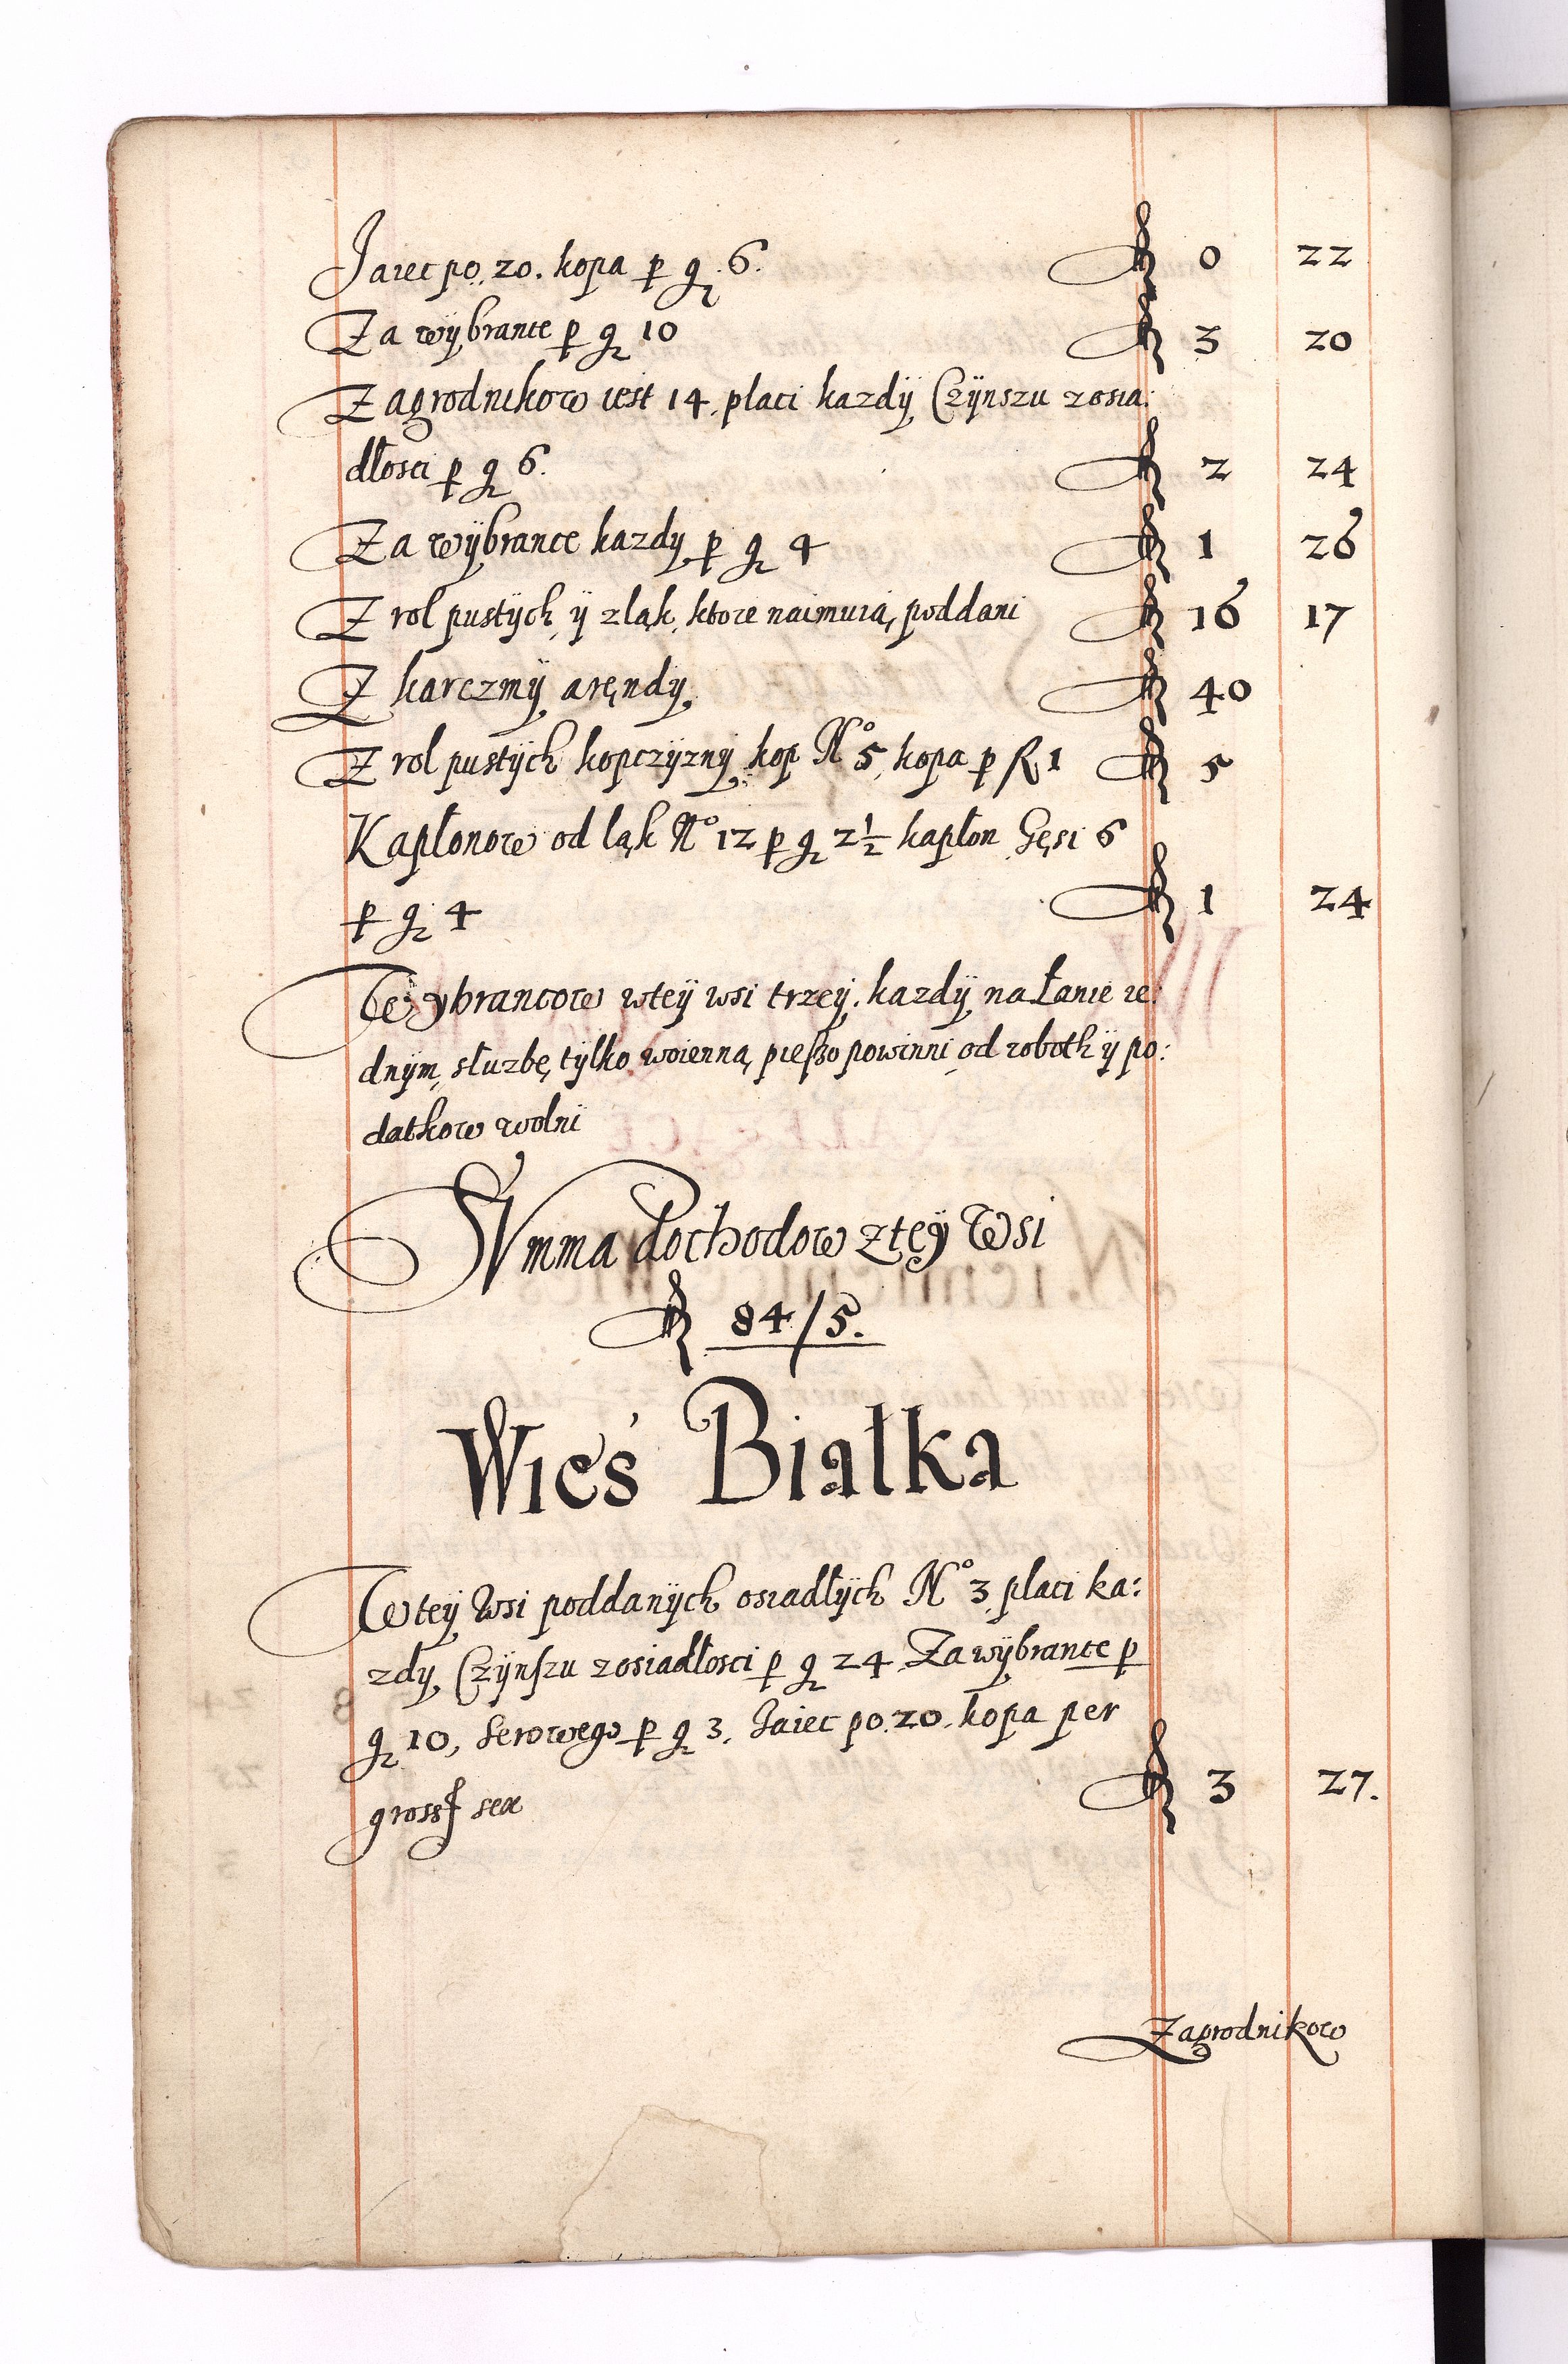 Jaiec po. 20. kopa p gr 6. fl 0 22
Za wÿbrance p gr 10 fl 3 20
Zagrodnikow iest 14. płaci kazdÿ Czÿnszu zosia:
dłosci p gr 6. fl 2 24
Za wÿbrance kazdy p gr 4 fl 1 26
Z rol pustÿch ÿ z ląk, ktore naimuią poddani fl 16 17
Z karczmÿ aręndy fl 40
Z rol pustÿch kopczÿznÿ kop No 5, kopa p fl 1 fl 5
Kapłonow od ląk No 12 p gr 2½ kapłon Gęsi 6
p gr 4 fl 1 24
Wybrancow wteÿ wsi trzey. kazdÿ na Łanie ie:
dnÿm, słuzbę tÿlko woienną pieszo powinni od roboth ÿ po:
datkow wolni
Summa dochodow ztey Wsi
fl 84/5.
Wieś Białka
Wteÿ Wsi poddanÿch osiadłÿch No 3 płaci ka:
zdy Czÿnszu zosiadłosci p gr 24 Za wÿbrance p
gr 10, Serowego p gr 3. Jaiec po. 20. kopa per
gross sex fl 3 27.
Zagrodnikow